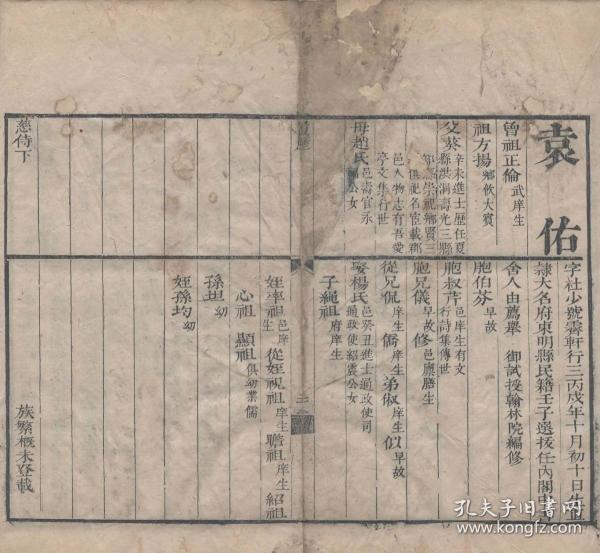 袁佑
字社少號霽軒行三丙戌年十月初十日生
隸大名府東明縣民籍壬子選拔任內閣中書
舍人由薦舉 御試授翰林院編修
曾祖正倫武庠生
祖方揚鄉飲大賓
父葵辛未進士歷任夏縣洪洞壽光三縣
崇祀鄉賢三
俱祀名宦載郡邑人物志有吾愛亭文集行世
母趙氏邑壽官永公女
慈侍下
胞伯芬早故
胞叔芹邑庠生有文行詩集傳世
胞兄儀早故 修邑廩膳生
從兄侃庠生 僑庠生 弟俶庠生 似早故
娶楊氏邑癸丑進士通政使司通政使紹震公女
子繩祖府庠生
姪率祖邑庠生 從姪視祖庠生 瞻祖庠生 紹祖
心祖 顯祖俱幼業儒
孫坦幼
姪孫均幼
族繁概未登載
孔夫子旧书网
www.kongfz.com